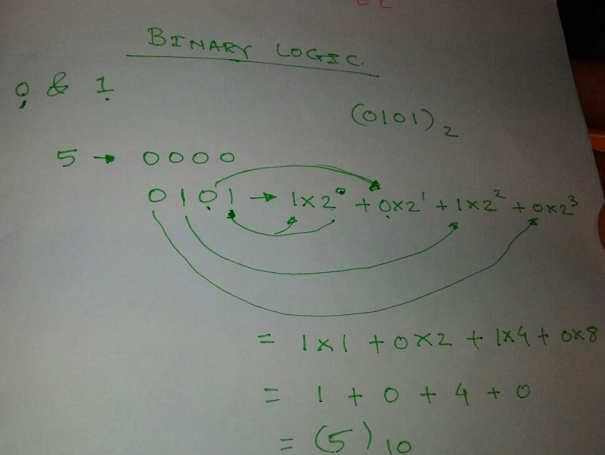 BINARY LOGIC.
0 & 1
(0101)₂
5 → 0000
0101 → 1×2⁰ + 0×2¹ + 1×2² + 0×2³
= 1×1 + 0×2 + 1×4 + 0×8
= 1 + 0 + 4 + 0
= (5)₁₀